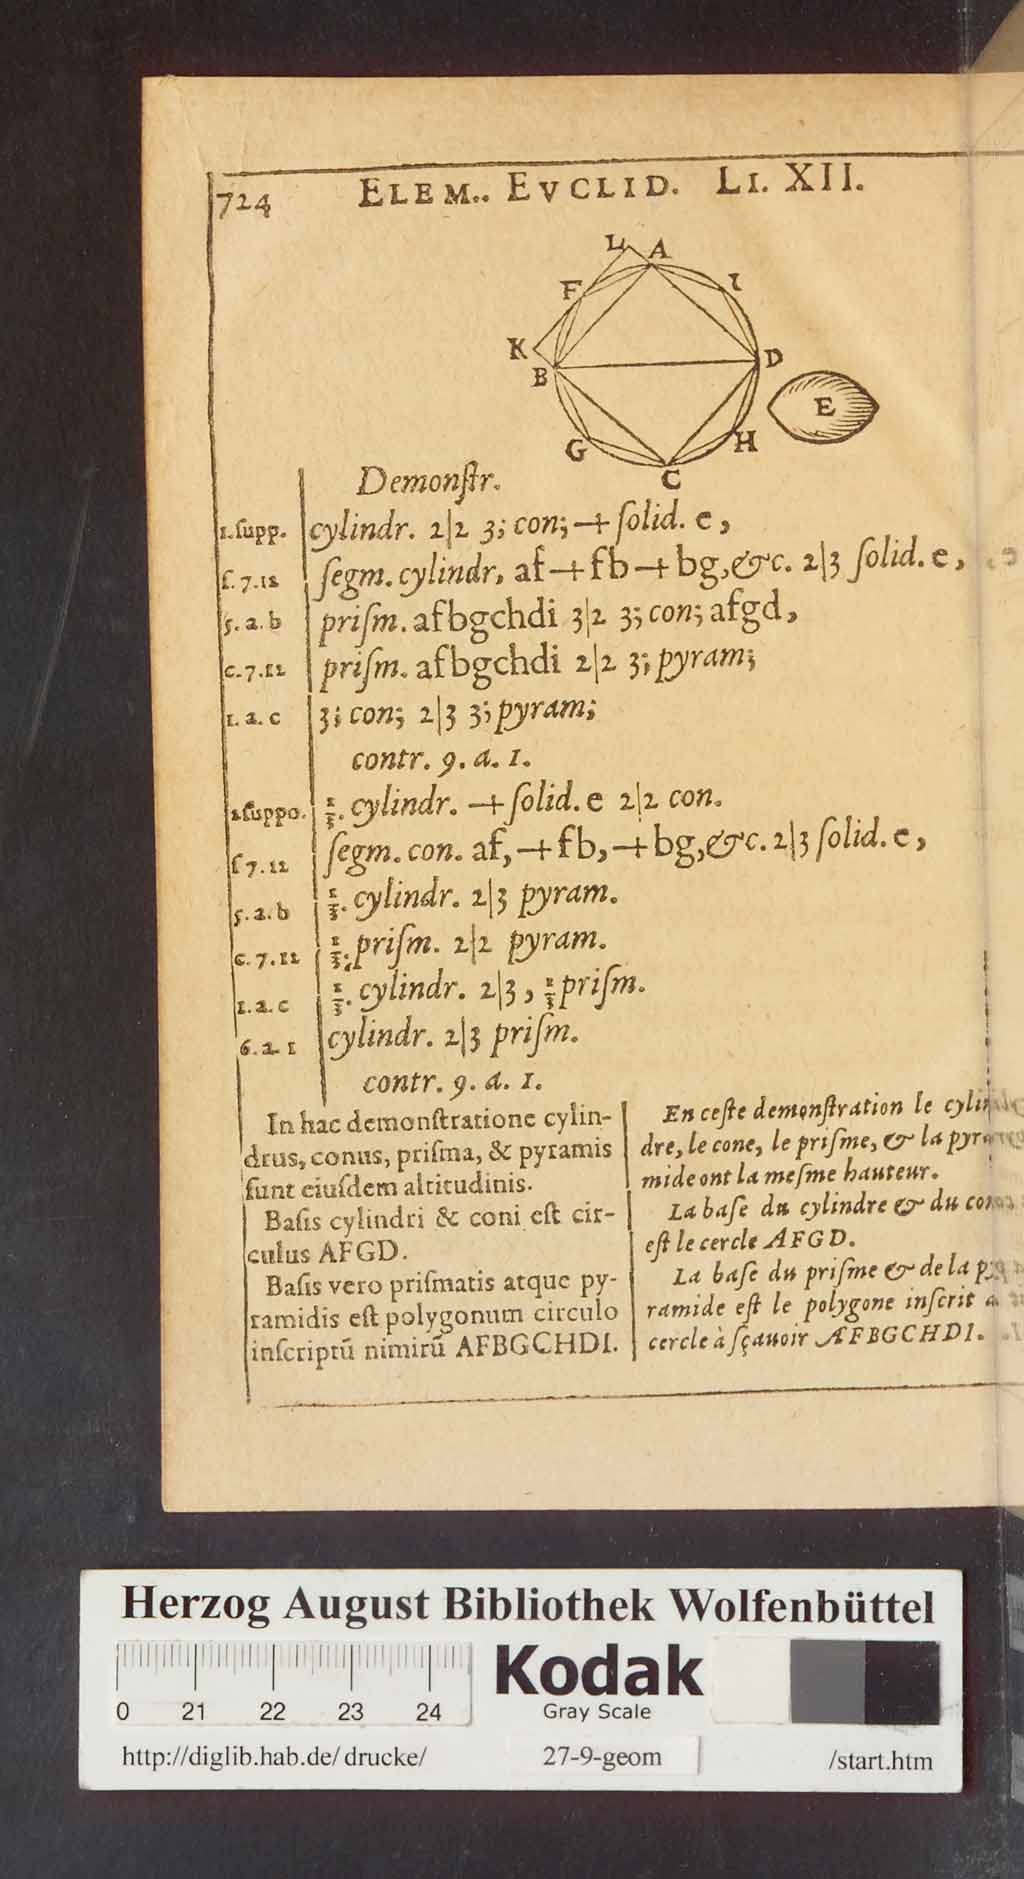 724 ELEM.. EVCLID. LI. XII.
L A
F I
K
B D
E
G H
C
Demonſtr.
1.ſupp. cylindr. 2|2 3; con; -+ ſolid. e,
f. 7. 12 ſegm. cylindr, af -+ fb -+ bg, &c. 2|3 ſolid. e,
5. a. b priſm. afbgchdi 3|2 3; con; afgd,
c. 7. 12 priſm. afbgchdi 2|2 3; pyram;
1. a. c 3; con; 2|3 3; pyram;
contr. 9. a. 1.
2ſuppo. 1/3. cylindr. -+ ſolid. e 2|2 con.
f 7. 12 ſegm. con. af, -+ fb, -+ bg, &c. 2|3 ſolid. e,
5. a. b 1/3. cylindr. 2|3 pyram.
c. 7. 12 1/3. priſm. 2|2 pyram.
1. a. c 1/3. cylindr. 2|3, 1/3 priſm.
6. a. 1 cylindr. 2|3 priſm.
contr. 9. a. 1.
In hac demonſtratione cylin-
drus, conus, priſma, & pyramis
ſunt eiuſdem altitudinis.
Baſis cylindri & coni eſt cir-
culus AFGD.
Baſis vero priſmatis atque py-
ramidis eſt polygonum circulo
inſcriptū nimirū AFBGCHDI.
En ceſte demonſtration le cylin
dre, le cone, le priſme, & la pyra
mide ont la meſme hauteur.
La baſe du cylindre & du cone
eſt le cercle AFGD.
La baſe du priſme & de la py
ramide eſt le polygone inſcrit a
cercle à ſçauoir AFBGCHDI.
Herzog August Bibliothek Wolfenbüttel
0 21 22 23 24
Kodak
Gray Scale
http://diglib.hab.de/drucke/ 27-9-geom /start.htm